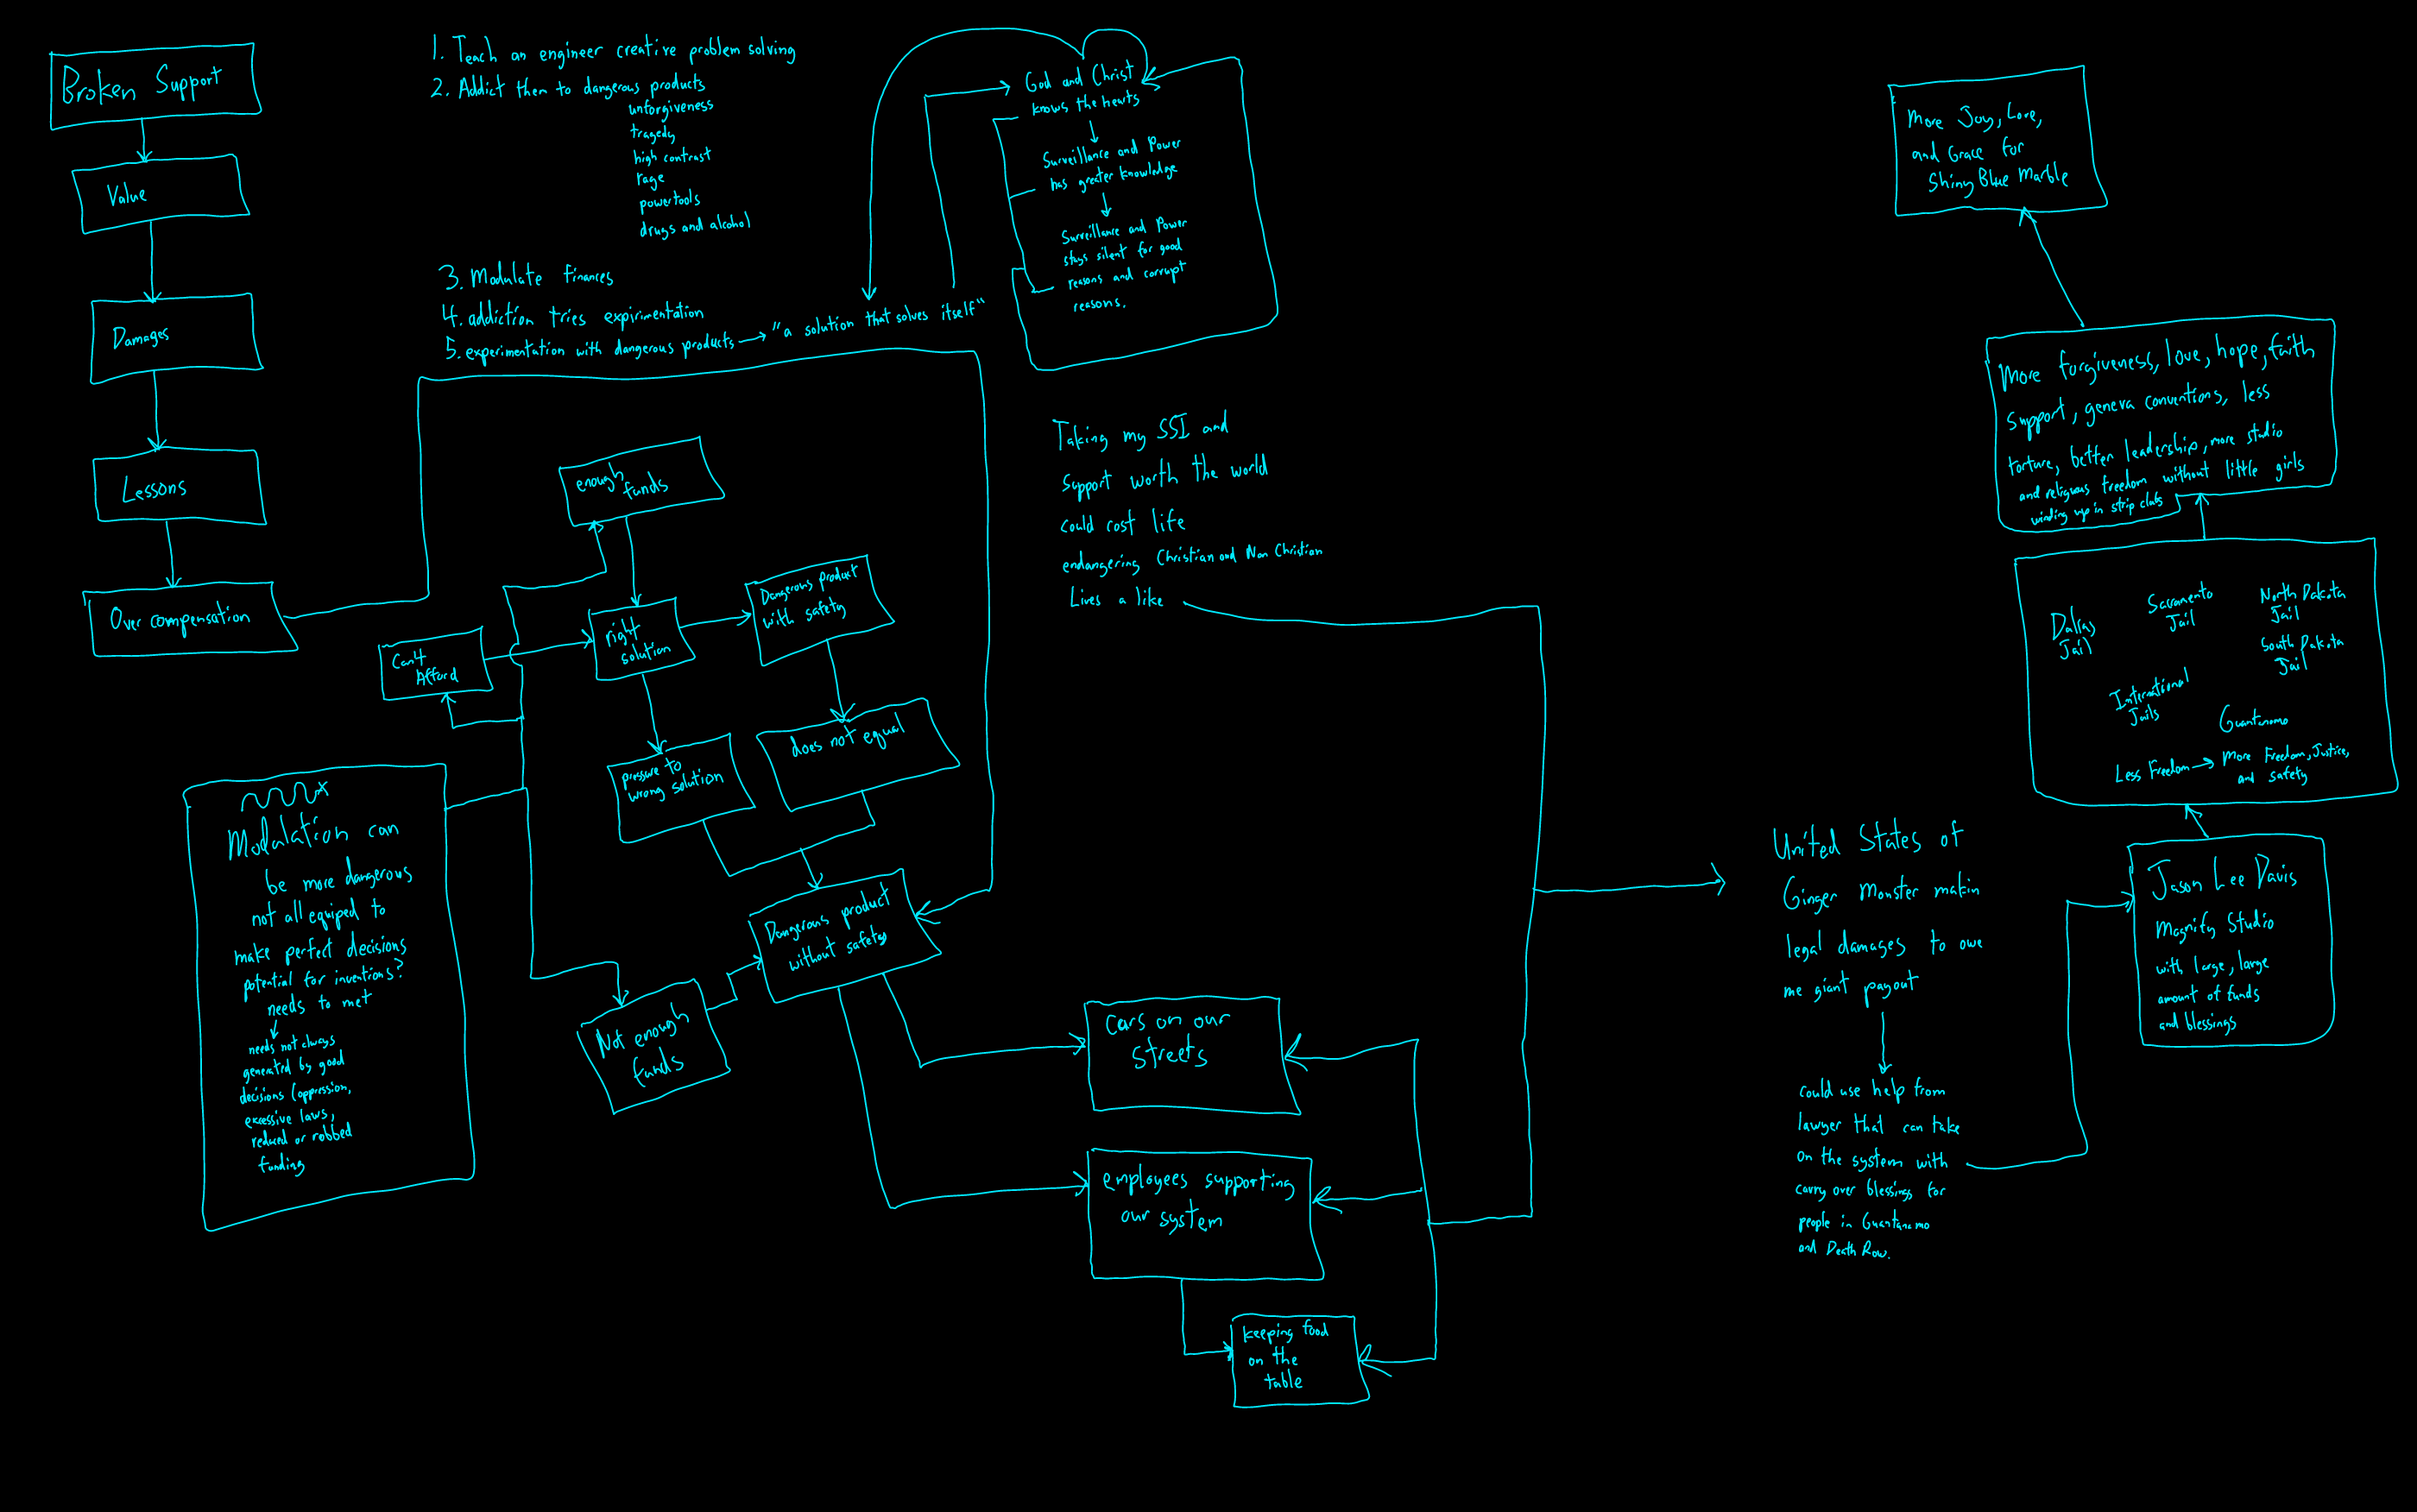 Broken Support
Value
Damages
Lessons
Over compensation
1. Teach an engineer creative problem solving
2. Addict them to dangerous products
unforgiveness
tragedy
high contrast
rage
powertools
drugs and alcohol
3. Modulate finances
4. addiction tries expirimentation
5. experimentation with dangerous products → "a solution that solves itself"
God and Christ
knows the hearts
Surveillance and Power
has greater knowledge
Surveillance and Power
stays silent for good
reasons and corrupt
reasons.
Taking my SSI and
support worth the world
could cost life
endangering Christian and Non Christian
Lives a like
enough
funds
Can't
Afford
right
solution
Dangerous product
with safety
pressure to
wrong solution
does not equal
Dangerous product
without safety
Not enough
funds
Modalation can
be more dangerous
not all equiped to
make perfect decisions
potential for inventions?
needs to met
needs not always
generated by good
decisions (oppression,
excessive laws,
reduced or robbed
funding
Cars on our
streets
employees supporting
our system
keeping food
on the
table
United States of
Ginger Monster makin
legal damages to owe
me giant payout
could use help from
lawyer that can take
on the system with
carry over blessings for
people in Guantanamo
and Death Row.
More Joy, Love,
and Grace for
Shiny Blue Marble
More forgiveness, love, hope, faith
support, geneva conventions, less
torture, better leadership, more studio
and religious freedom without little girls
winding up in strip clubs
Dallas
Jail
Sacramento
Jail
North Dakota
Jail
South Dakota
Jail
International
Jails
Guantanamo
Less Freedom → More Freedom, Justice,
and safety
Jason Lee Davis
Magnify Studio
with large, large
amount of funds
and blessings